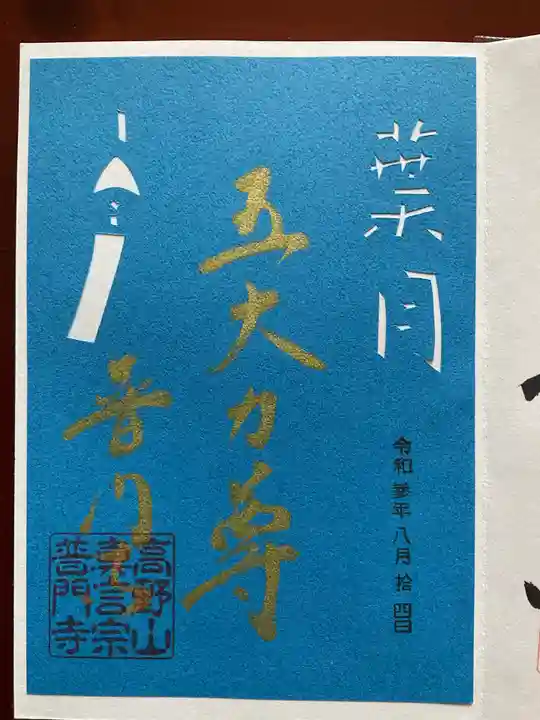 葉月
令和参年八月拾四日
五大力尊
普門
高野山
真言宗
普門寺